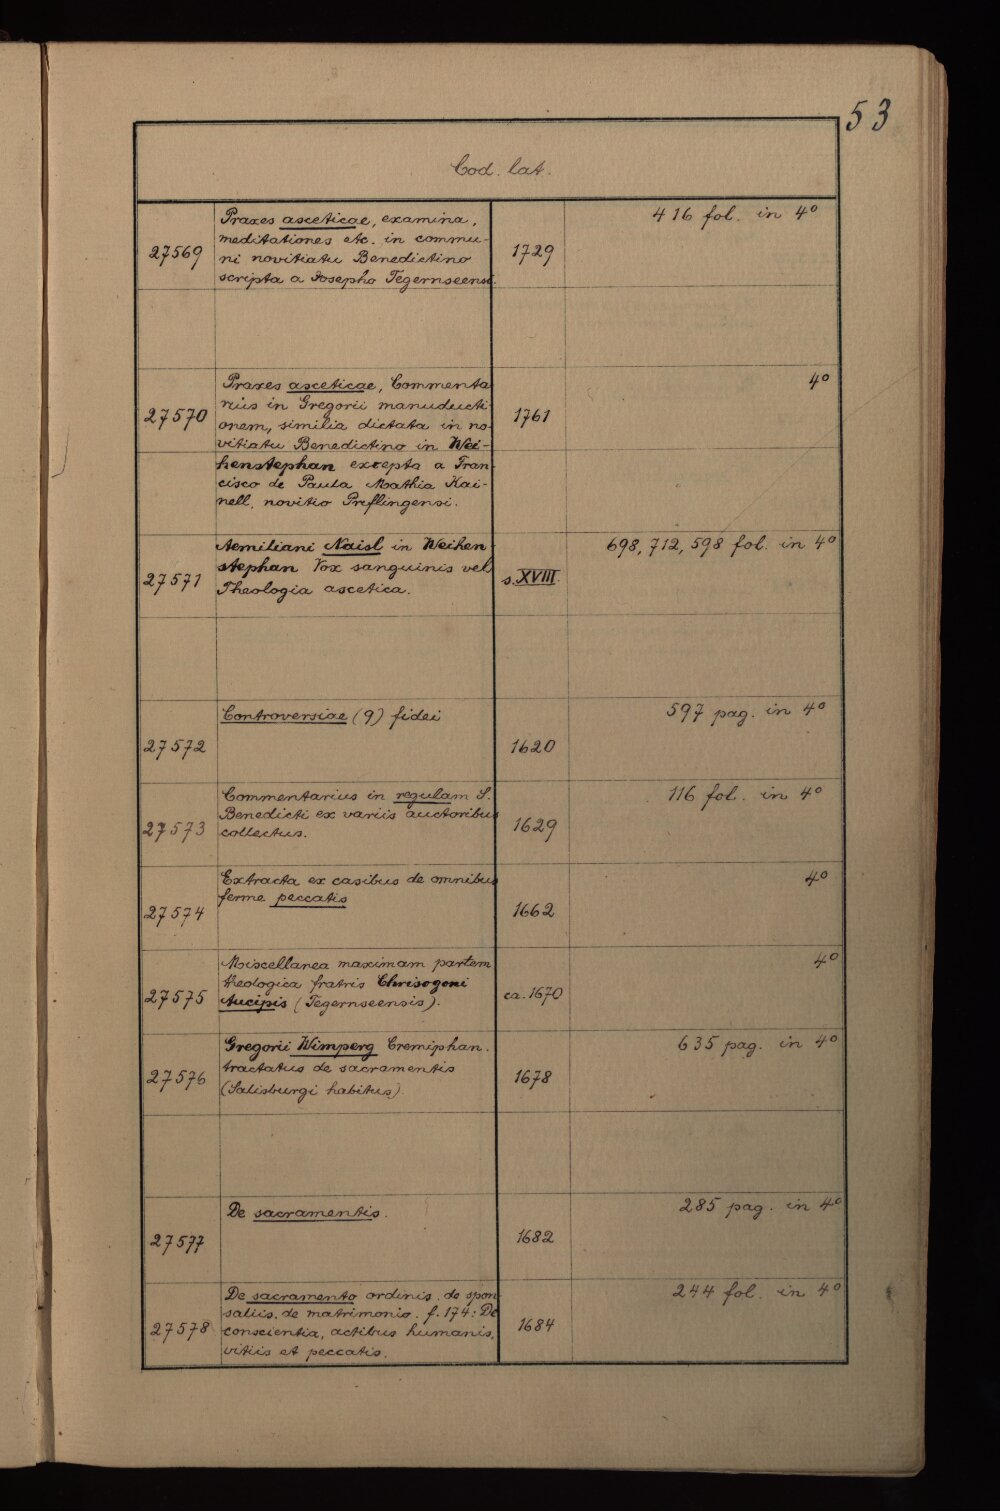 53
Cod. lat.
27569 Praxes asceticae, examina, 1729 416 fol. in 4°
meditationes etc. in commu-
ni novitiatu Benedictino
scripta a Josepho Tegernseensi.
27570 Praxes asceticae, Commenta 1761 4°
rius in Gregorii manuducti
onem, similia dictata in no-
vitiatu Benedictino in Wei-
henstephan excepta a Fran
cisco de Paula Mathia Kai-
nell, novitio Preflingensi.
27571 Aemiliani Naisl in Weihen s. XVIII. 698, 712, 598 fol. in 4°
stephan Vox sanguinis vel
Theologia ascetica.
27572 Controversiae (9) fidei 1620 597 pag. in 4°
27573 Commentarius in regulam S. 1629 116 fol. in 4°
Benedicti ex variis auctoribus
collectus.
27574 Extracta ex casibus de omnibus 1662 4°
ferme peccatis
27575 Miscellanea maximam partem ca. 1670 4°
theologica fratris Chrisogoni
Aucipis (Tegernseensis).
27576 Gregorii Wimperg Cremiphan. 1678 635 pag. in 4°
tractatus de sacramentis
(Salisburgi habitus).
27577 De sacramentis. 1682 285 pag. in 4°
27578 De sacramento ordinis, de spon 1684 244 fol. in 4°
saliis, de matrimonio. f. 174: De
conscientia, actibus humanis,
vitiis et peccatis.